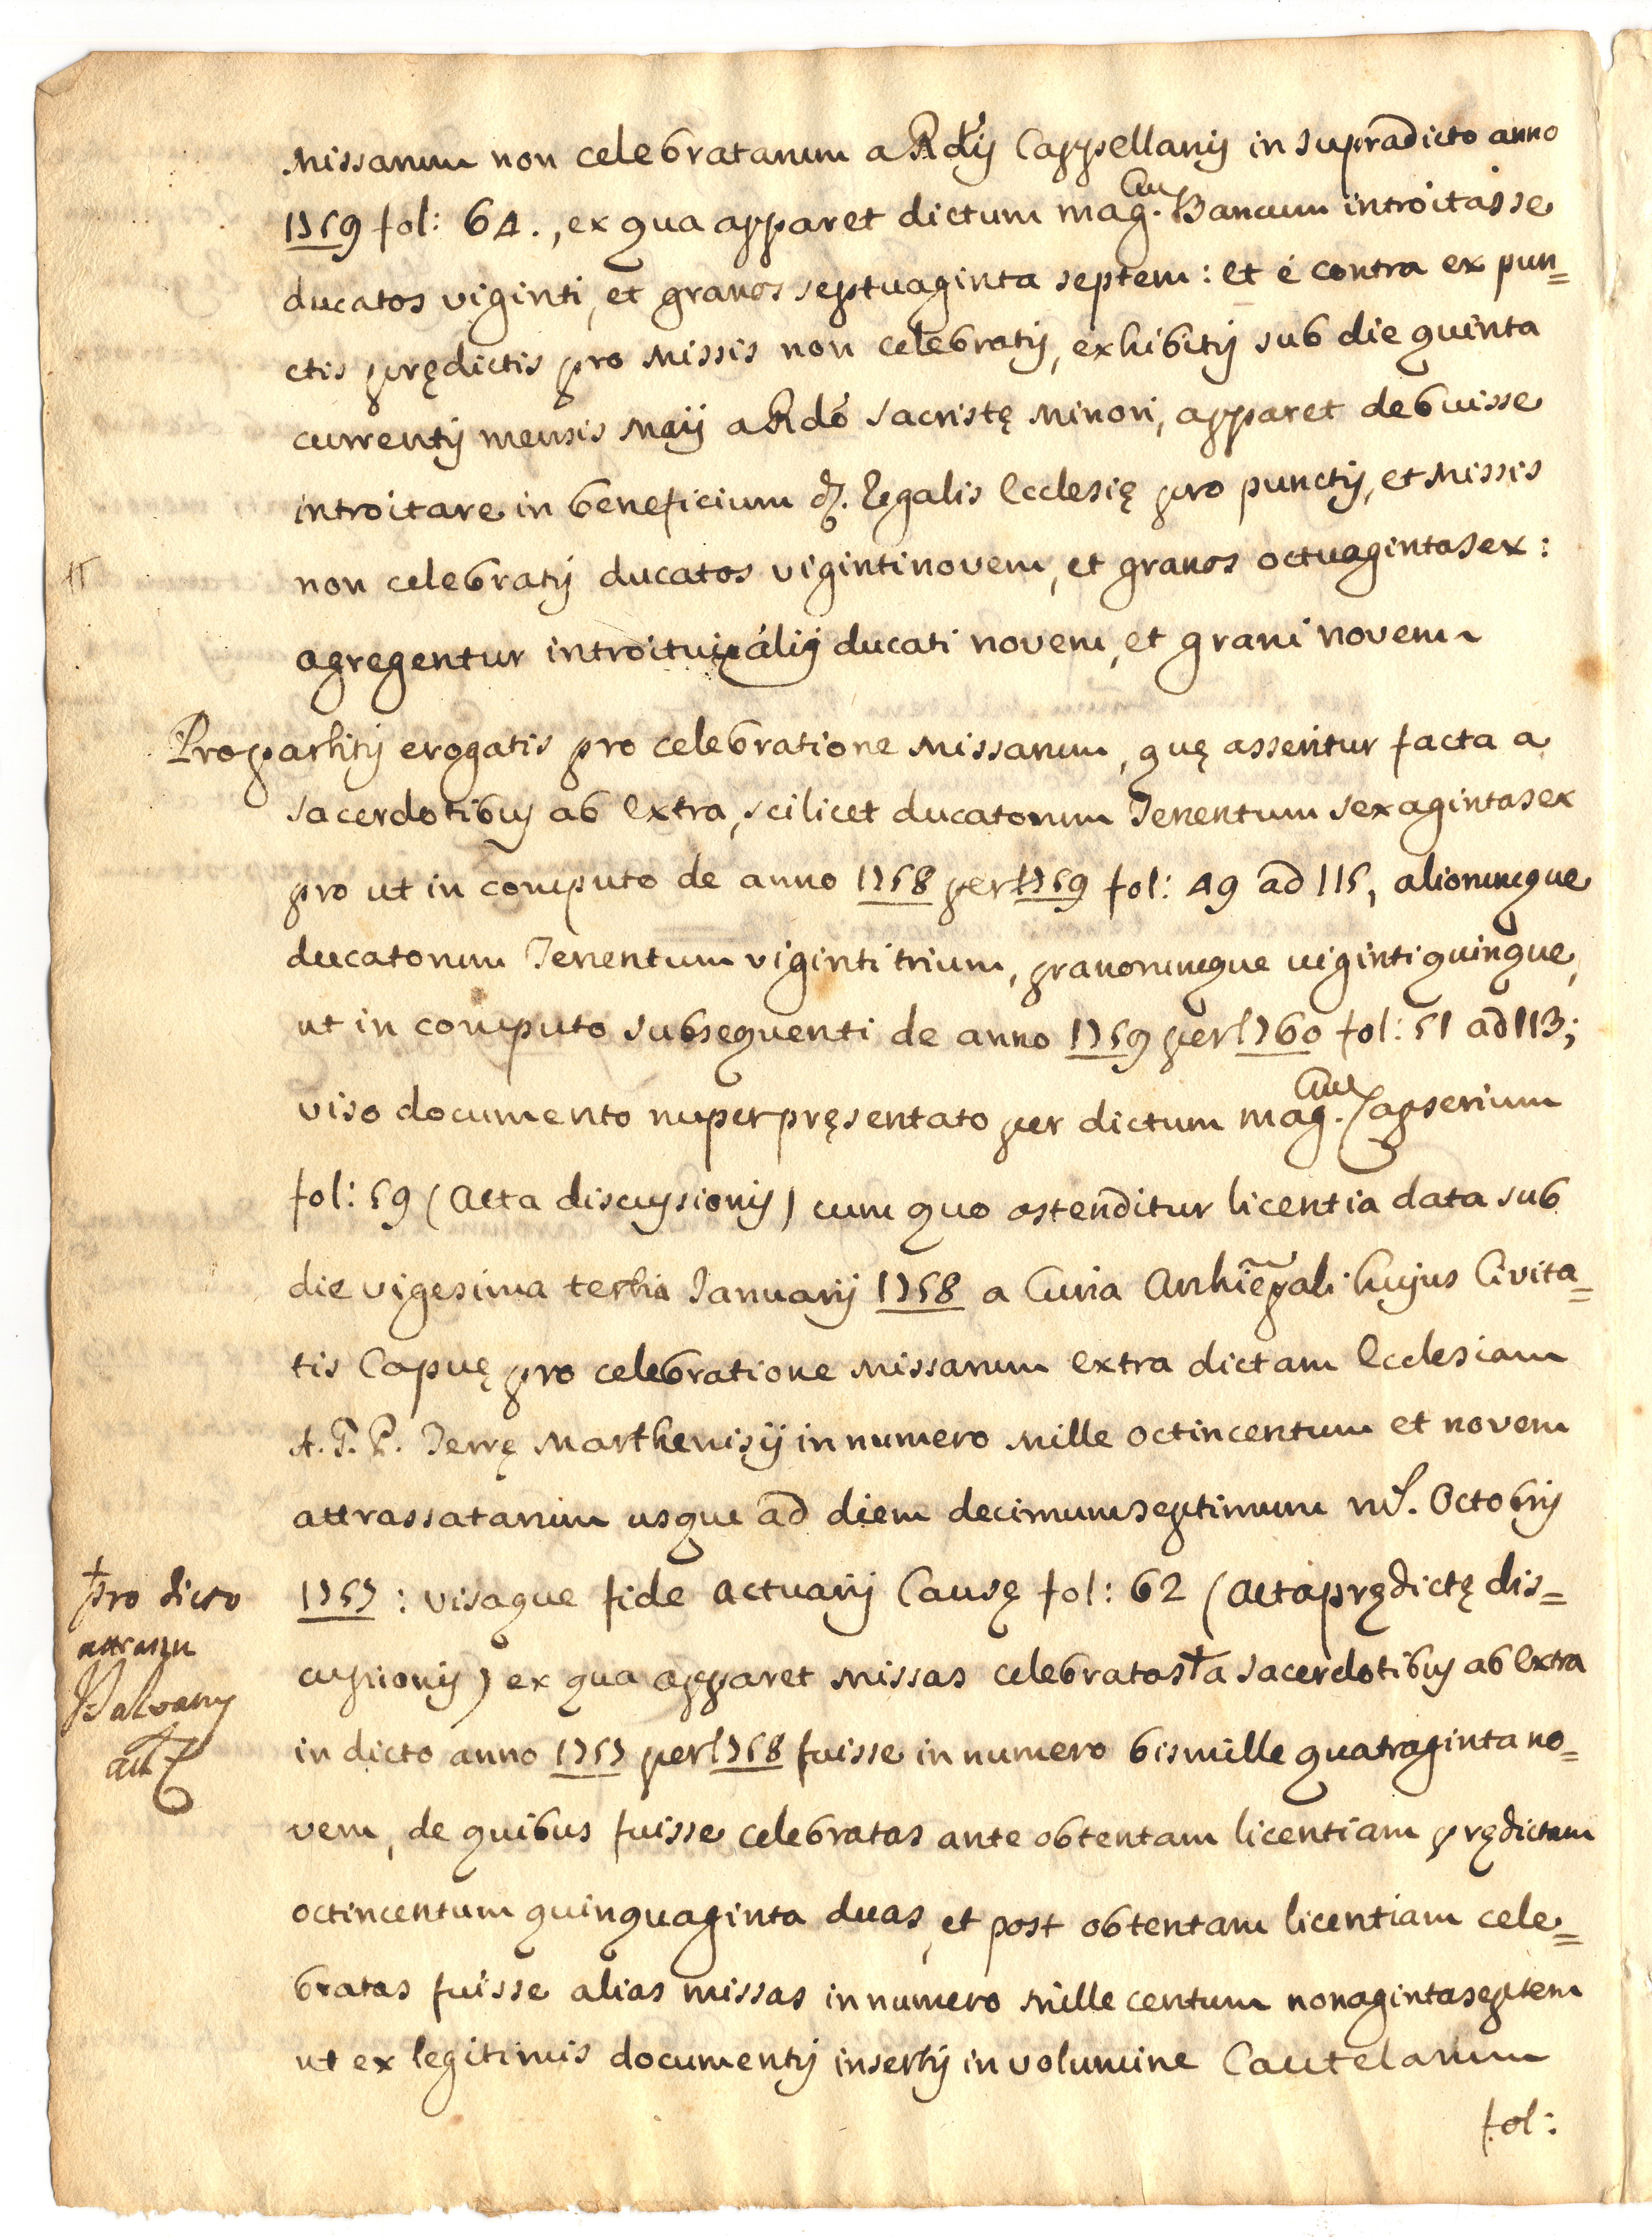 Missarum non celebratarum a Rdis Cappellanis in supradicto anno
1759 fol: 64., ex qua apparet dictum mag.cum Bancum introitasse
ducatos viginti, et granos septuaginta septem: et é contra ex pun=
ctis prędictis pro Missis non celebratis, exhibitis sub die quinta
currentis mensis Maij a Rdo Sacristę Minori, apparet debuisse
introitare in beneficium d. Regalis Ecclesię pro punctis, et Missis
non celebratis ducatos vigintinovem, et granos octuagintasex:
agregentur introitui alij ducati novem, et grani novem
Pro partitis erogatis pro celebratione Missarum, quę asseritur facta a
Sacerdotibus ab extra, scilicet ducatorum Tercentum sexagintasex
pro ut in computo de anno 1758 per 1759 fol: 49 ad 115, aliorumque
ducatorum Tercentum viginti trium, granorumque vigintiquinque,
ut in computo subsequenti de anno 1759 per 1760 fol: 51 ad 113;
viso documento nuper pręsentato per dictum mag.cum Capserium
fol: 59 (Acta discussionis) cum quo ostenditur licentia data sub
die vigesima tertia Januarij 1758 a Curia Archiepali hujus Civita=
tis Capuę pro celebratione Missarum extra dictam Ecclesiam
A. G. P. Terrę Marthenisij in numero mille octincentum et novem
attrassatarum usque ad diem decimumseptimum Octobris
1757: visaque fide Actuarij Causę fol: 62 (Acta prędictę dis=
cussionis) ex qua apparet Missas celebratas † a Sacerdotibus ab extra
in dicto anno 1757 per 1758 fuisse in numero bismille quatraginta no=
vem, de quibus fuisse celebratas ante obtentam licentiam prędictam
octincentum quinquaginta duas, et post obtentam licentiam cele=
bratas fuisse alias missas in numero mille centum nonagintaseptem
ut ex legitimis documentis insertis in volumine Cautelarum
fol:
† pro dicto
attrassu